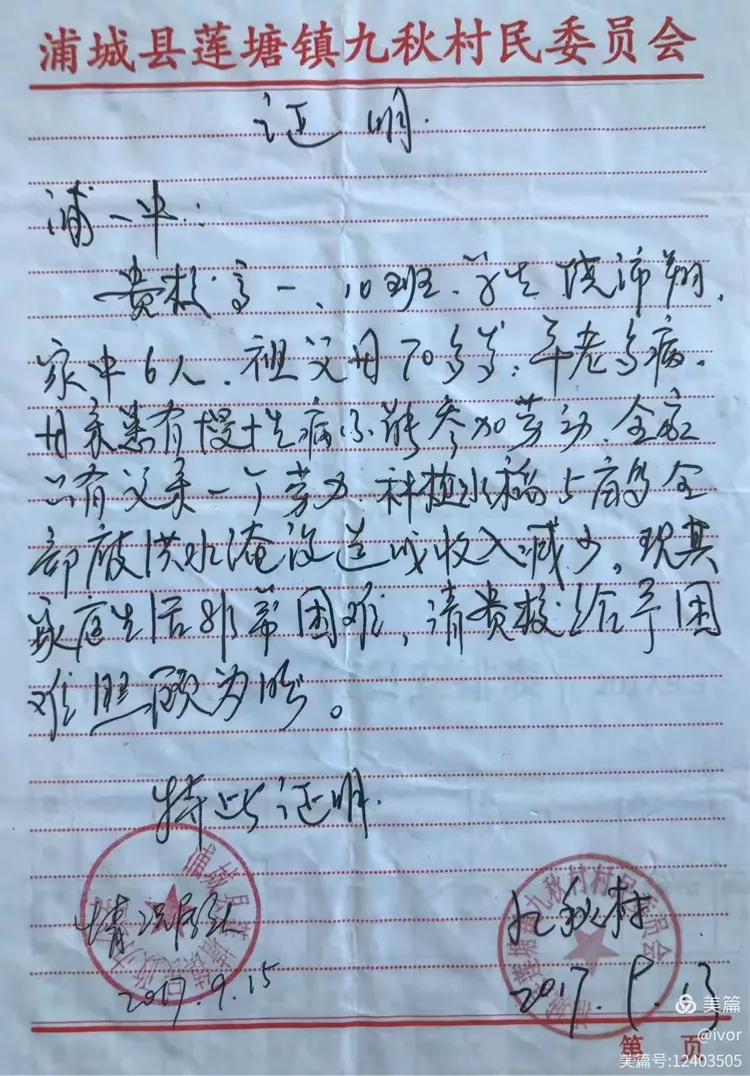 浦城县莲塘镇九秋村民委员会
证明.
浦一中:
贵校高一、10班、学生饶沛翔,
家中6人.祖父母70多岁,年老多病.
母亲患有慢性病不能参加劳动.全家
只有父亲一个劳力.种植水稻5亩多全
部被洪水淹没造成收入减少,现其
家庭生活非常困难,请贵校给予困
难照顾为盼。
特此证明.
情况属实
2017.9.15
九秋村
2017.9.13
第 页
美篇
@ivor
美篇号:12403505